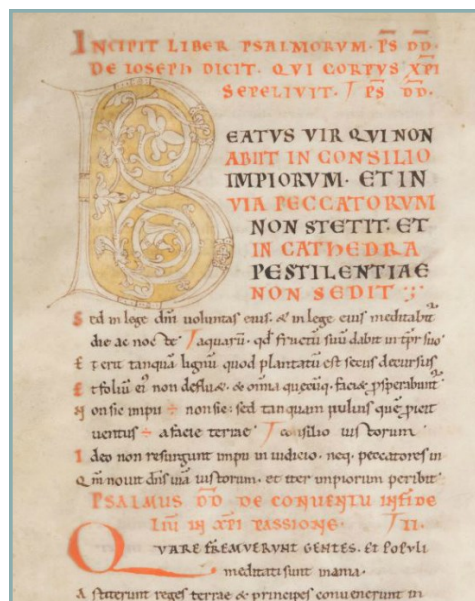 INCIPIT LIBER PSALMORVM· P̅S D̅D̅·
DE IOSEPH DICIT· QVI CORPVS X̅P̅I
SEPELIVIT· P̅S D̅D̅·
BEATVS VIR QVI NON
ABIIT IN CONSILIO
IMPIORVM· ET IN
VIA PECCATORVM
NON STETIT· ET
IN CATHEDRA
PESTILENTIAE
NON SEDIT
Sed in lege dn̅i uoluntas eius· & in lege eius meditabit᷑
die ac nocte aquaru̅· qd̅ fructu̅ suu̅ dabit in tp̅r suo
Et erit tanqua̅ lignu̅ quod plantatu̅ est secus decursus
Et foliu̅ ei᷒ non defluæ· & om̅ia quecu̅q· faciæ ꝓsperabunt᷑
Non sic impii ÷ non sic· sed tanquam puluis que̅ ꝓicit
uentus ÷ a facie terrae consilio iustorum
Ideo non resurgunt impii in iudicio· neq· peccatores in
Qm̅ nouit dn̅s uia̅ iustorum· et iter impiorum peribit
PSALMUS D̅D̅ DE CONUENTU INFIDE
LIU̅ IN X̅P̅I PASSIONE· II·
QVARE FREMVERVNT GENTES· Et POPVLI
meditati sunt inania·
Astiterunt reges terrae & principes conuenerunt in